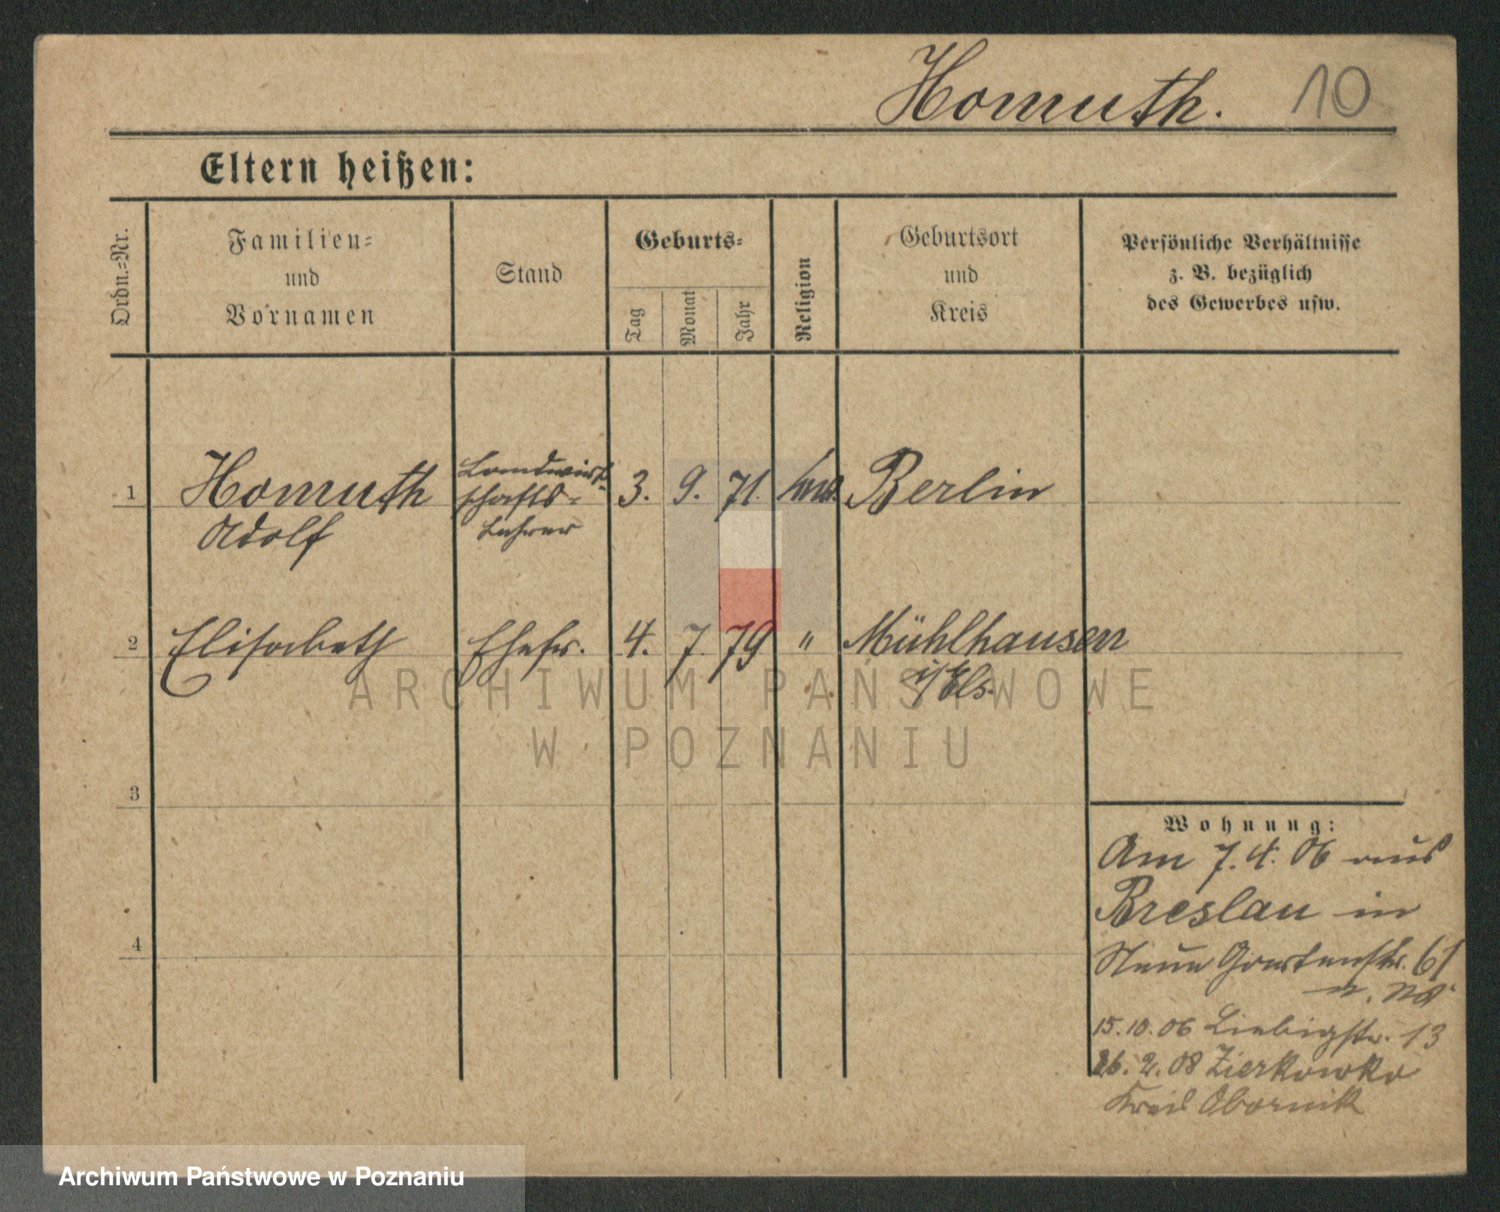 Homuth. 10
Eltern heißen:
Ordn.=Nr.
Familien=
und
Vornamen
Stand
Geburts=
Tag
Monat
Jahr
Religion
Geburtsort
und
Kreis
Persönliche Verhältnisse
z. B. bezüglich
des Gewerbes usw.
1 Homuth Landwirt- 3. 9. 71. Berlin
Adolf schafts-
Lehrer
2 Elisabeth Ehefr. 4. 7. 79 " Mühlhausen
i/Els.
3
4
Wohnung:
Am 7.4.06 aus
Breslau in
Neue Gartenstr. 61
15.10.06 Liebigstr. 13
26.2.08 Zierkowko
Kreis Obornik
ARCHIWUM PAŃSTWOWE
W POZNANIU
Archiwum Państwowe w Poznaniu